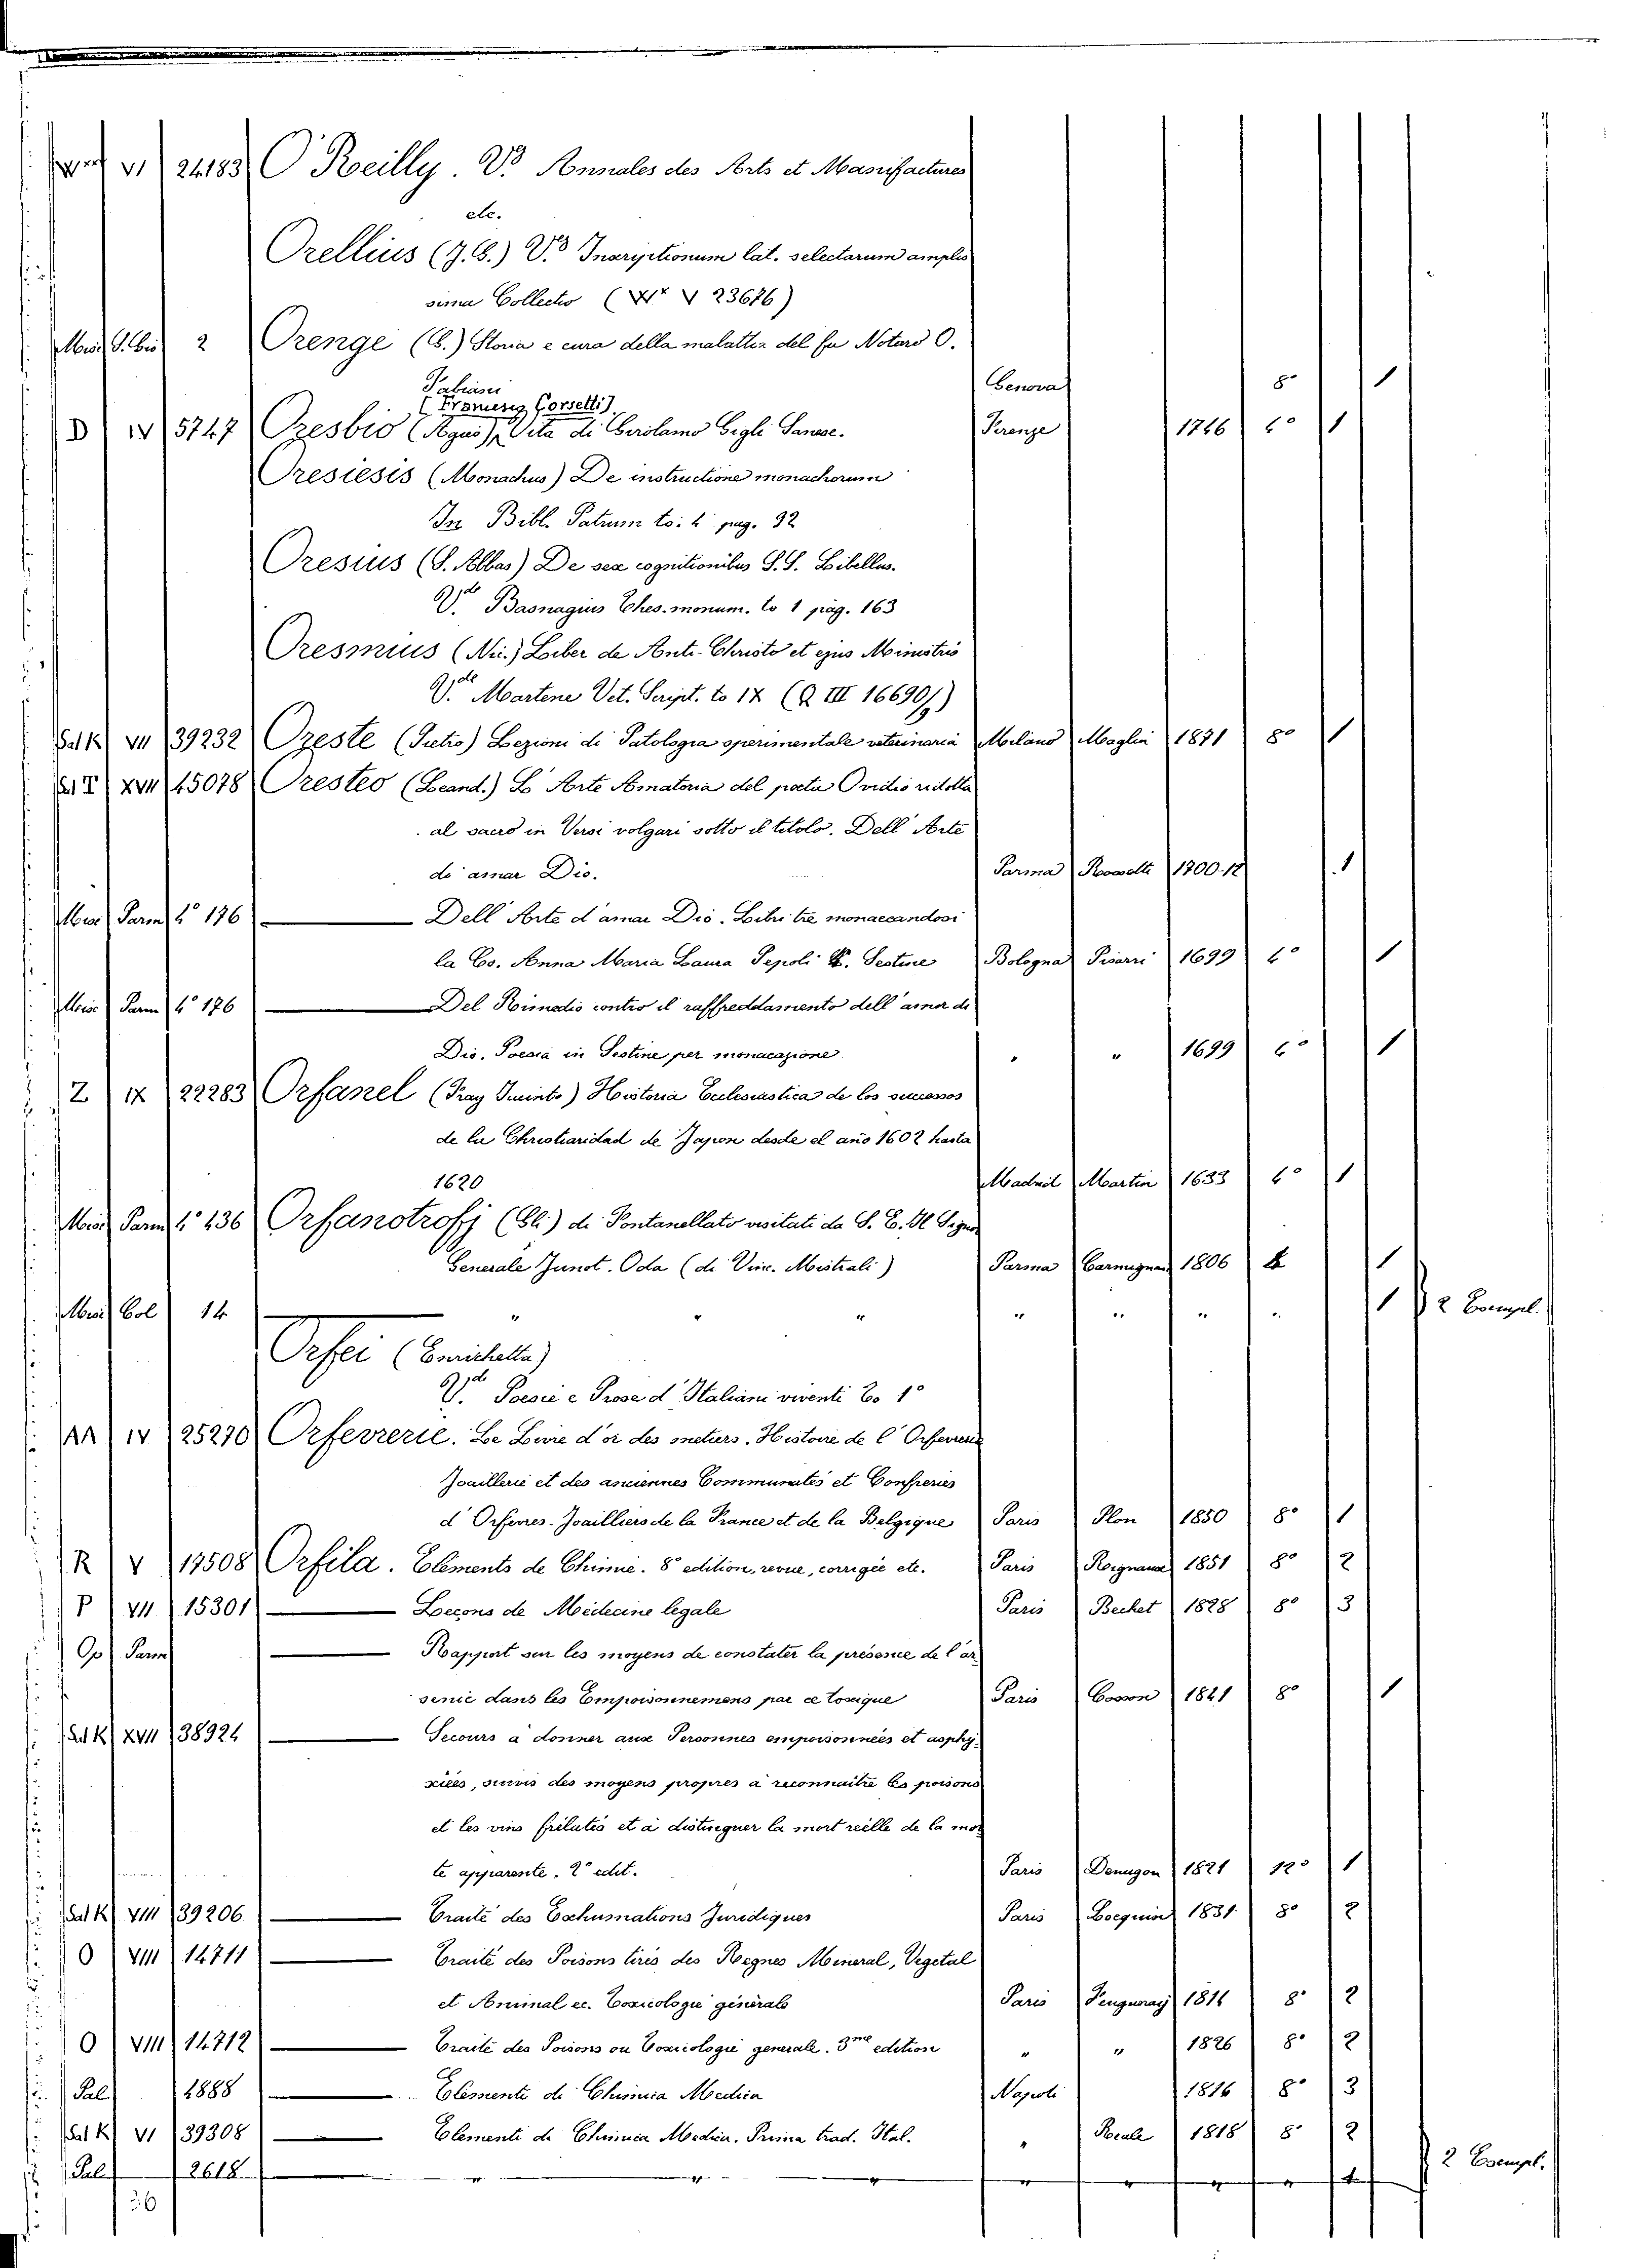 VI 24183 O'Reilly. V.º Annales des Arts et Manifactures
etc.
Orellius (J. G.) V.º Inscriptionum lat. selectarum amplis
sima Collectio ( V 23676)
Misc. 2 Orengé (G.) Storia e cura della malattia del fu Notaro O.
Fabiani Genova 8º 1
(Francesco Corsetti)
D IV 5747 Oresbio (Agieo) Vita di Girolamo Gigli Sanese. Firenze 1746 4º 1
Oresiesis (Monachus) De instructione monachorum
In Bibl. Patrum to: 4 pag. 92
Oresius (S. Abbas) De sex cognitionibus S.S. Libellus.
V.de Basnagius Thes. monum. to 1 pag. 163
Oresmius (Nic.) Liber de Anti-Christo et ejus Ministris
V.de Martene Vet. Script. to IX (Q III 16690/)
Sal K VII 39232 Oreste (Pietro) Lezioni di Patologia sperimentale veterinaria Milano Maglia 1871 8º 1
Sal I XVII 45078 Oresteo (Leand.) L'Arte Amatoria del poeta Ovidio ridotta
al sacro in Versi volgari sotto il titolo. Dell'Arte
di amar Dio. Parma Rossetti 1700-12 1
Misc Parm 4º 176 Dell'Arte d'amar Dio. Libri tre monacandosi
la Co. Anna Maria Laura Pepoli Sestine Bologna Pisarri 1699 4º 1
Misc Parm 4º 176 Del Rimedio contro il raffreddamento dell'amor di
Dio. Poesia in Sestine per monacazione " " 1699 4º 1
Z IX 22283 Orfanel (Fray Iacinto) Historia Ecclesiastica de los successos
de la Christiandad de Japon desde el año 1602 hasta
1620 Madrid Martin 1633 4º 1
Misc Parm 4º 436 Orfanotrofj (Gli) di Fontanellato visitati da S. E. Il Signor
Generale Junot. Oda (di Vinc. Mistrali) Parma Carmignani 1806 4 1
Misc Col 14 " " " " " " " 1 2 Esempl.
Orfei (Enrichetta)
V.de Poesie e Prose d'Italiani viventi To 1º
AA IV 25270 Orfevrerie. Le Livre d'or des metiers. Histoire de l'Orfevrerie
Joaillerie et des anciennes Communatés et Confreries
d'Orfevres-Joailliers de la France et de la Belgique Paris Plon 1850 8º 1
R V 17508 Orfila. Eléments de Chimie. 8e edition, revue, corrigée etc. Paris 1851 8º 2
P VII 15301 Leçons de Médecine legale Paris Bechet 1828 8º 3
Op Parm Rapport sur les moyens de constater la présence de l'ar
senic dans les Empoisonnemens par ce toxique Paris Cosson 1841 8º 1
Sal K XVII 38924 Secours à donner aux Personnes empoisonnées et asphy-
xiées, suivis des moyens propres à reconnaître les poisons
et les vins frélatés et à distinguer la mort réelle de la mor
te apparente. 2e edit. Paris Demugon 1821 12º 1
Sal K VIII 39206 Traité des Exhumations Juridiques Paris 1831 8º 2
O VIII 14711 Traité des Poisons tirés des Regnes Mineral, Vegetal
et Animal ec. Toxicologie générale Paris 1814 8º 2
O VIII 14712 Traité des Poisons ou Toxicologie generale. 3me edition " " 1826 8º 2
Pal 1888 Elementi di Chimica Medica Napoli 1816 8º 3
Sal K VI 39308 Elementi di Chimica Medica. Prima trad. Ital. " Reale 1818 8º 2
Pal 2618 " " " " " " " 2 Esempl.
36